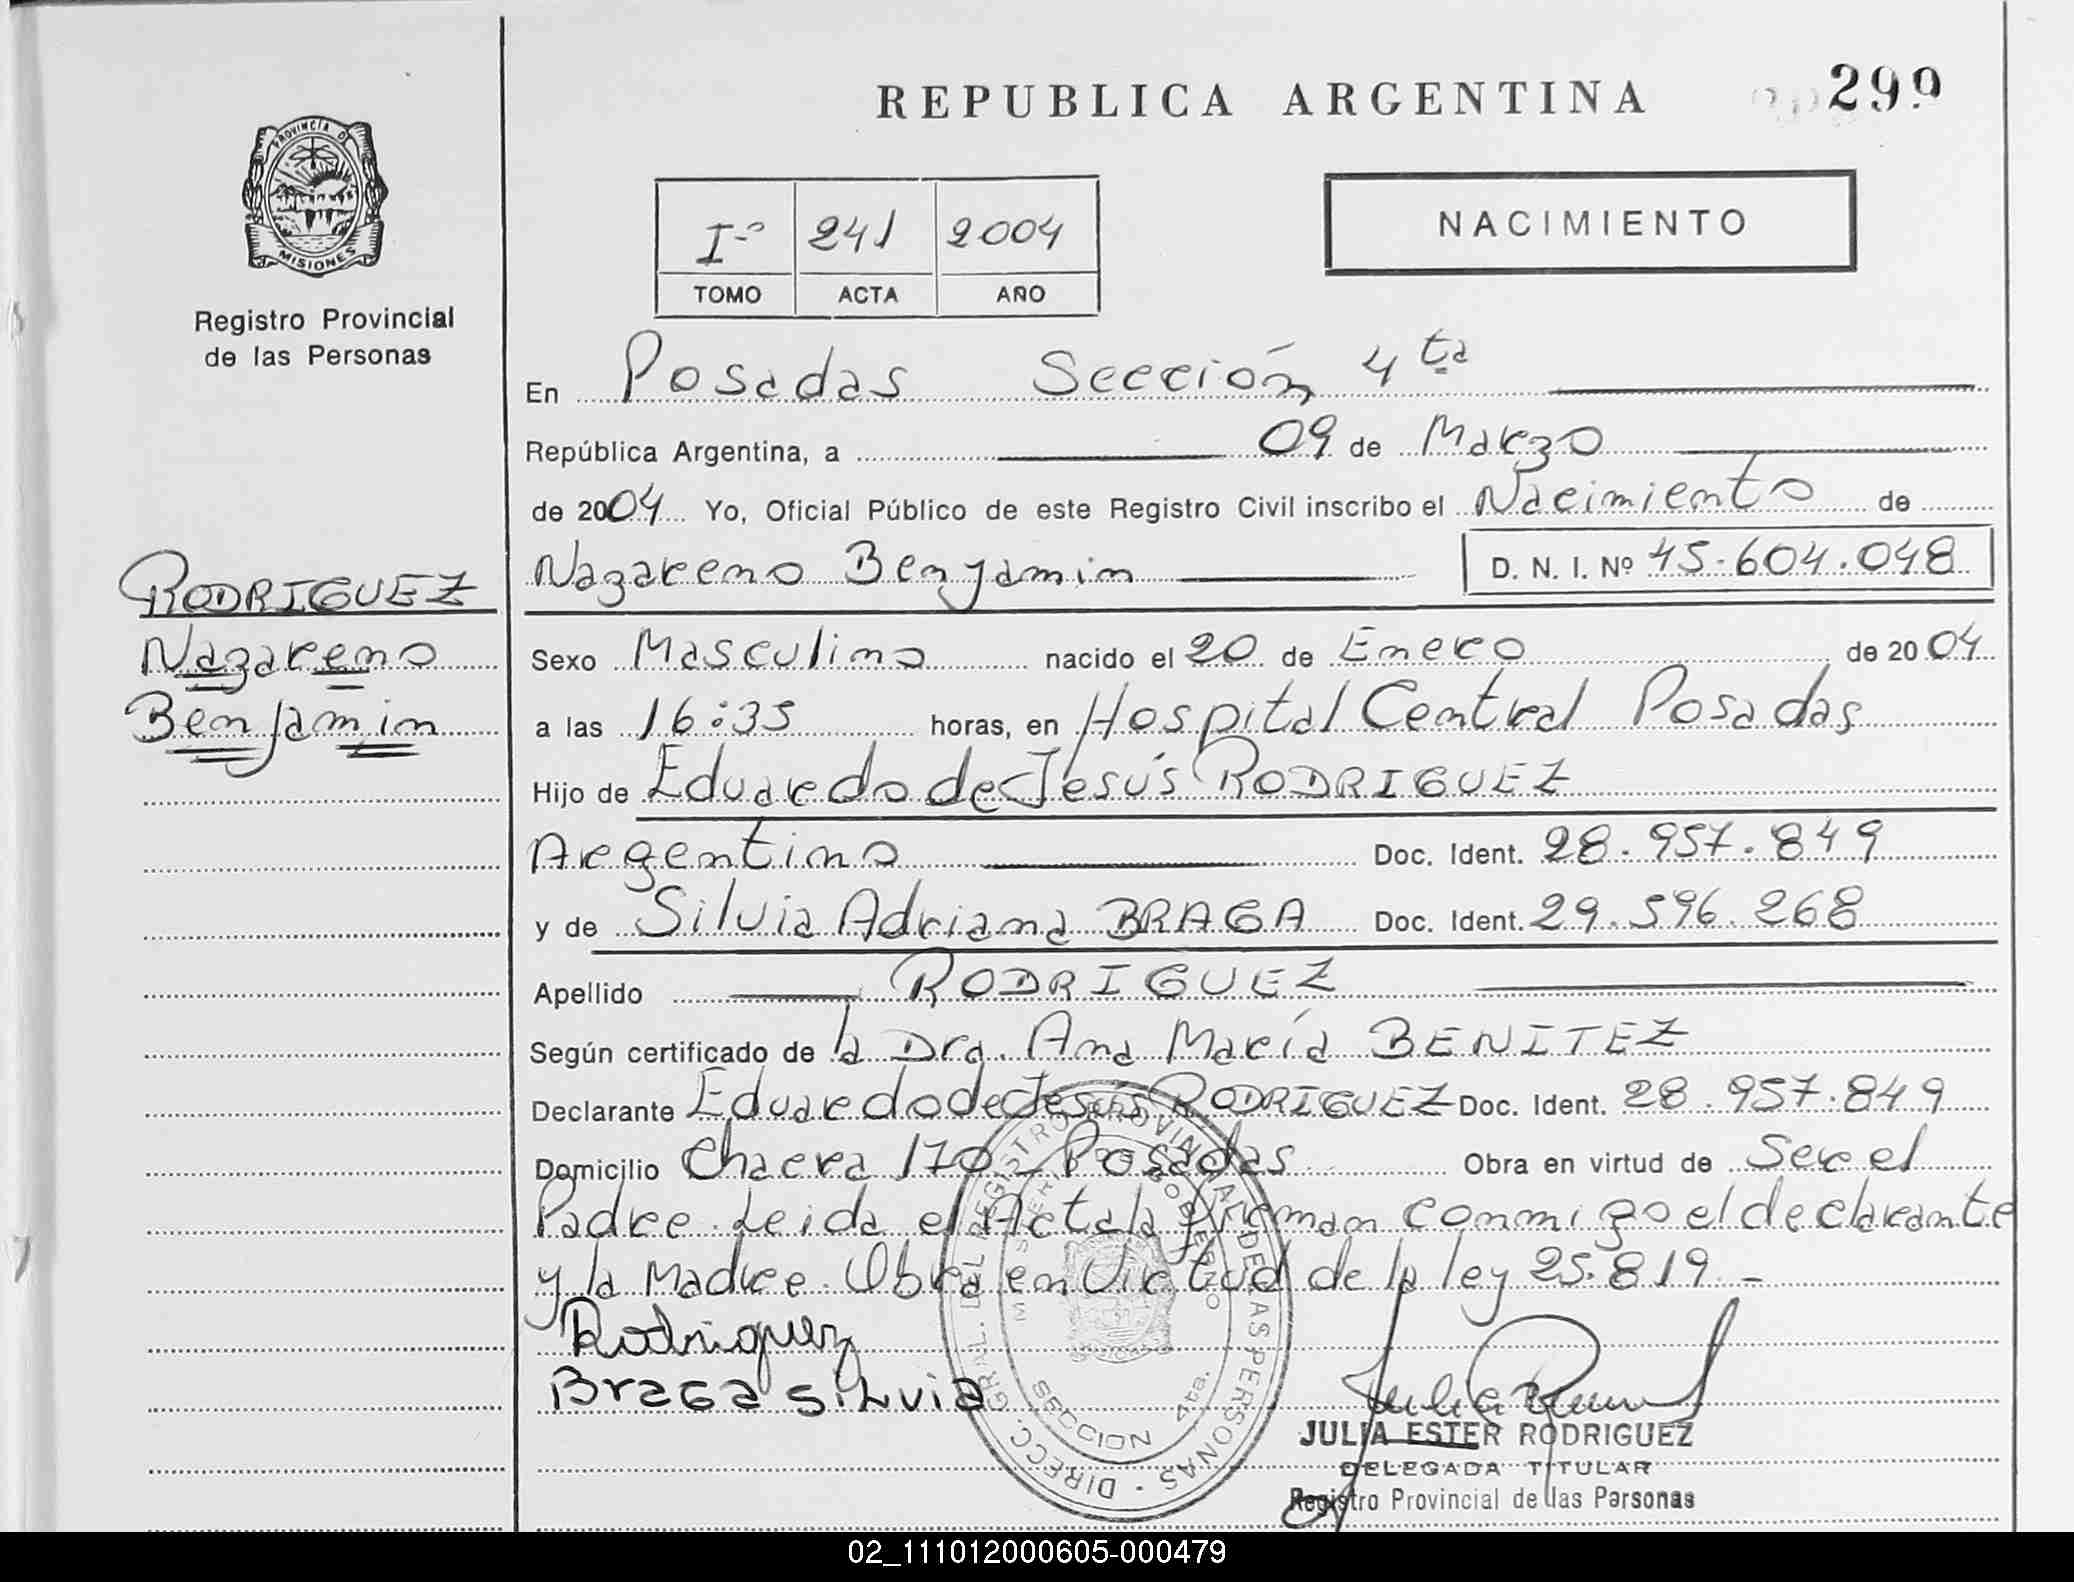 REPUBLICA ARGENTINA
299
PROVINCIA DE
MISIONES
Registro Provincial
de las Personas
Iº 241 2004
TOMO ACTA AÑO
NACIMIENTO
En Posadas Sección 4ta
República Argentina, a 09 de Marzo
de 2004 Yo, Oficial Público de este Registro Civil inscribo el Nacimiento de
Nazareno Benjamin D. N. I. Nº 45.604.048
RODRIGUEZ
Nazareno
Benjamin
Sexo Masculino nacido el 20 de Enero de 2004
a las 16:35 horas, en Hospital Central Posadas
Hijo de Eduardo de Jesús RODRIGUEZ
Argentino Doc. Ident. 28.957.849
y de Silvia Adriana BRAGA Doc. Ident. 29.596.268
Apellido RODRIGUEZ
Según certificado de la Dra. Ana María BENITEZ
Declarante Eduardo de Jesús RODRIGUEZ Doc. Ident. 28.957.849
Domicilio Chacra 170 - Posadas Obra en virtud de Ser el
Padre. Leida el Acta la firman conmigo el declarante
y la Madre. Obra en Virtud de la ley 25.819.-
Rodriguez
Braga Silvia
DIRECC. GRAL. DEL REGISTRO PROVINCIAL DE LAS PERSONAS
SECCION 4ta.
JULIA ESTER RODRIGUEZ
DELEGADA TITULAR
Registro Provincial de las Personas
02_111012000605-000479